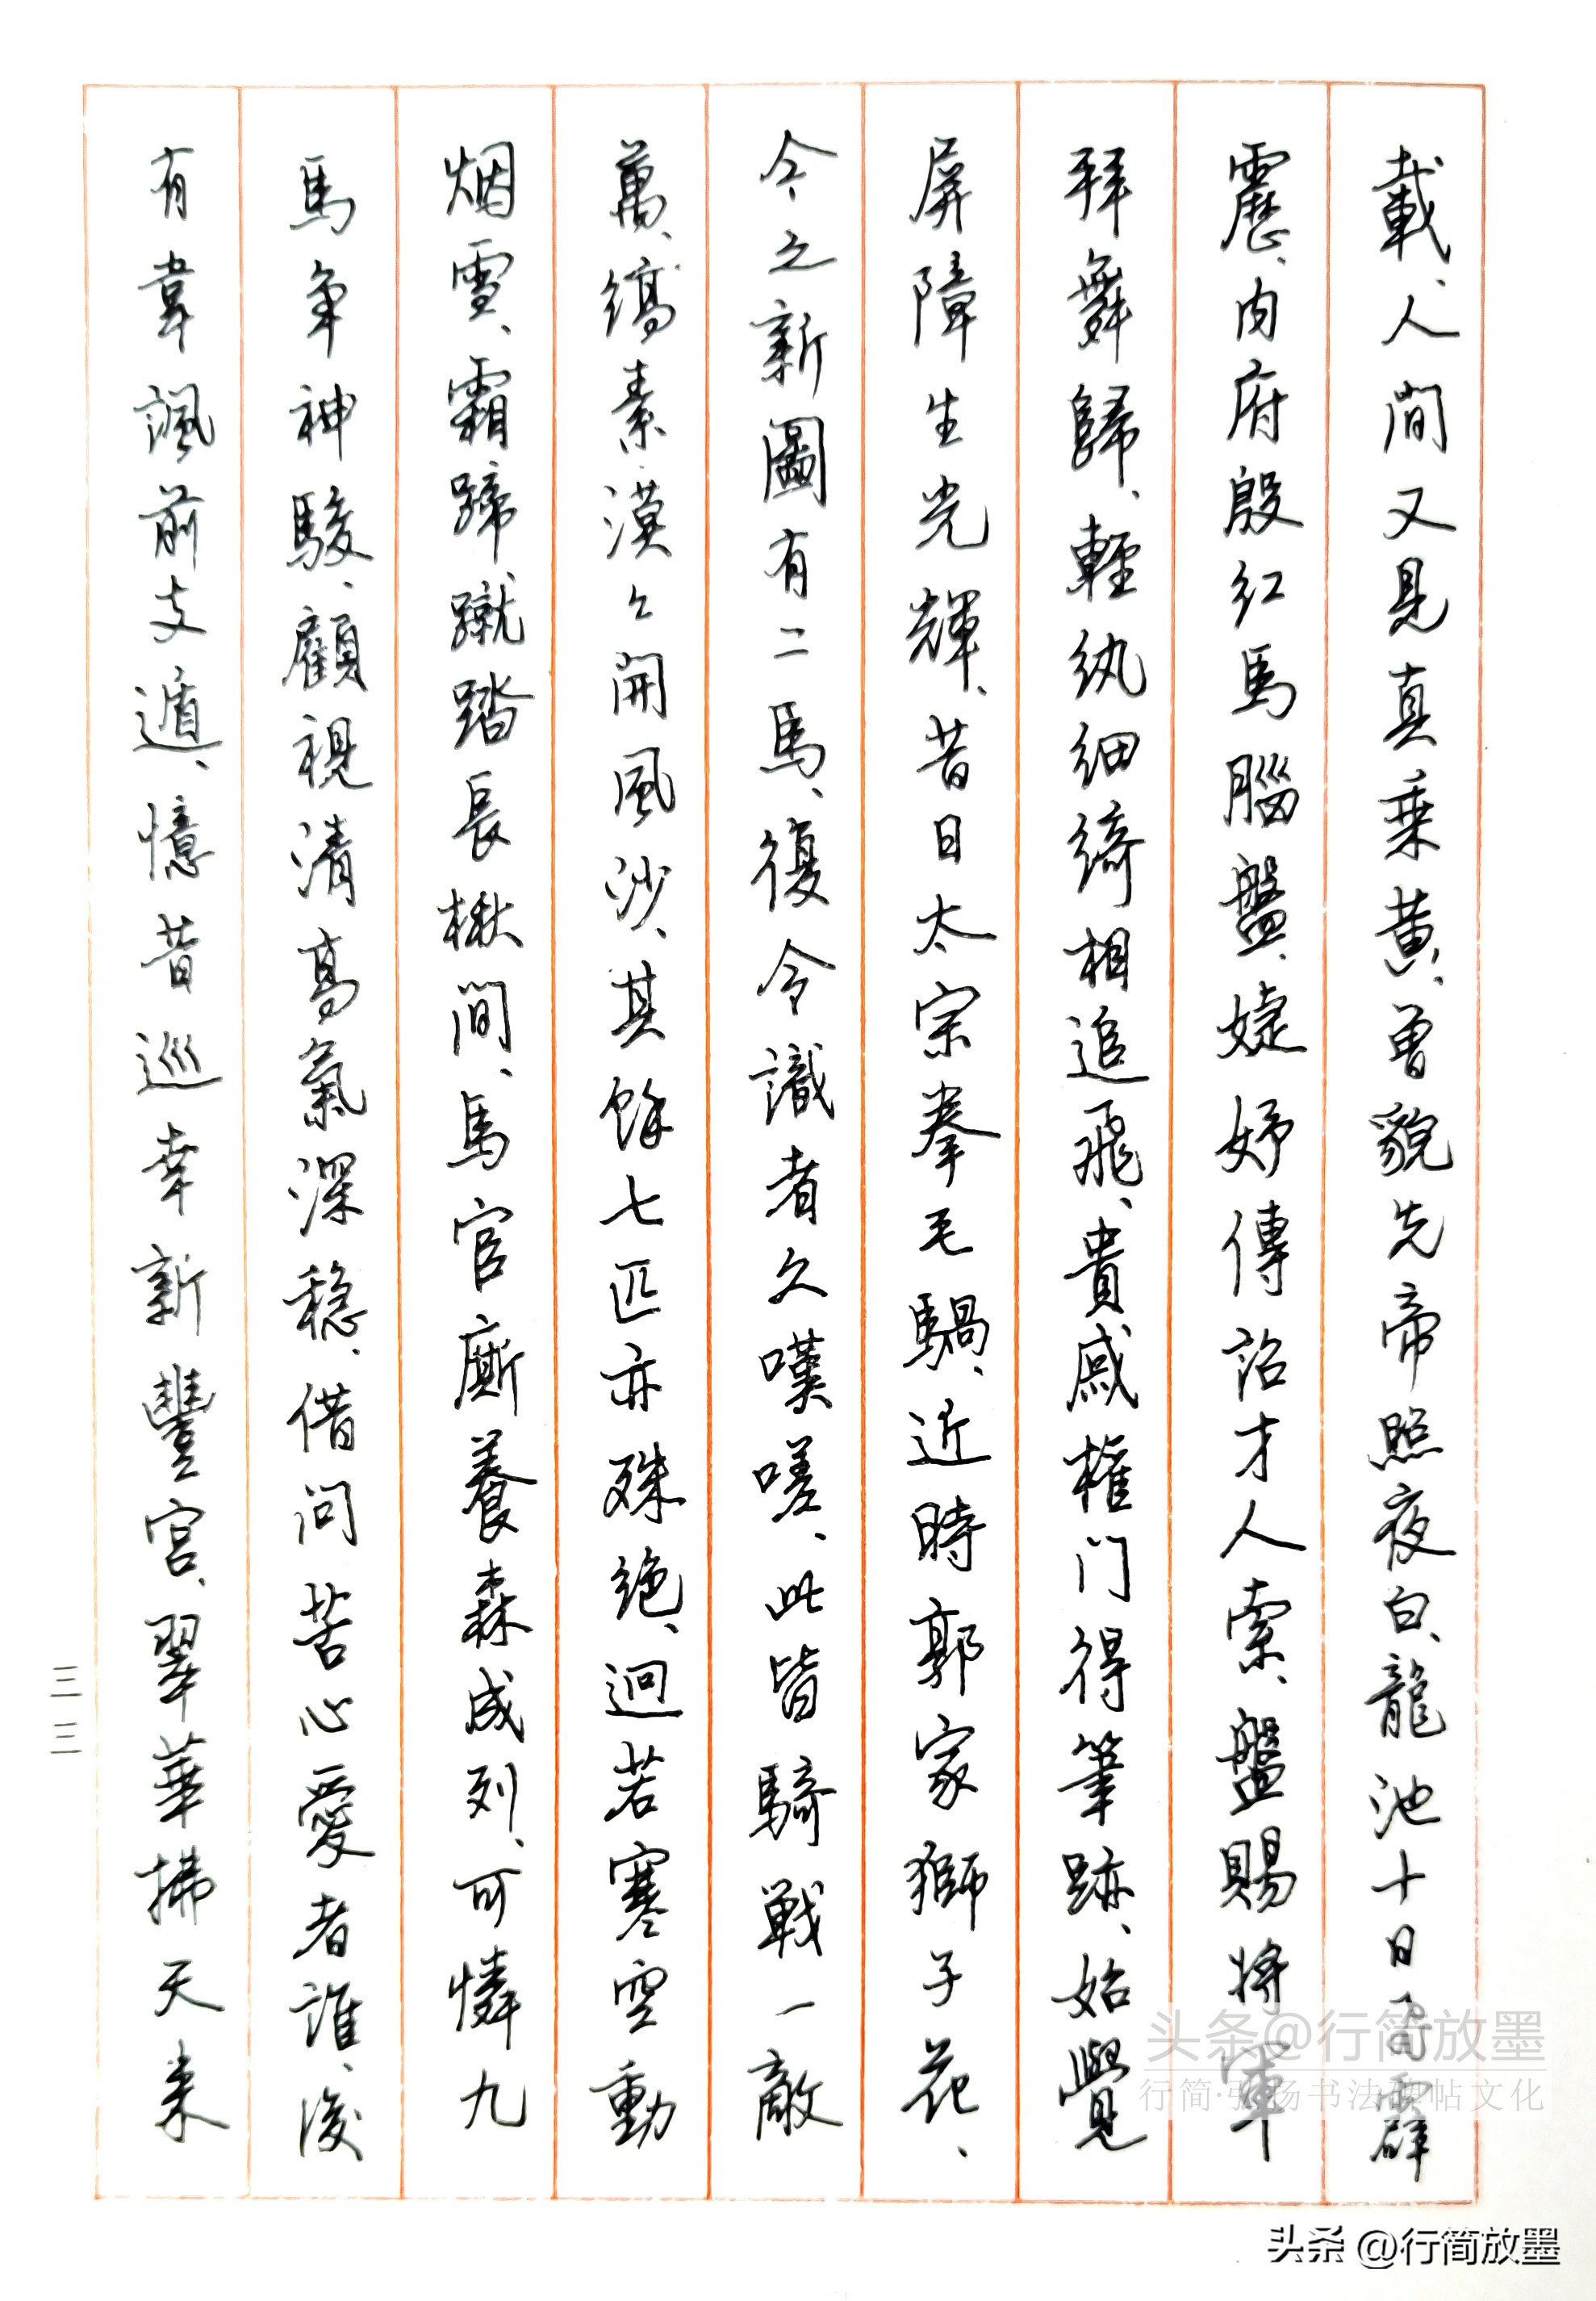 載、人間又見真乘黄、曾貌先帝照夜白、龍池十日飛霹
靂、内府殷红馬腦盤、婕妤傳詔才人索、盤賜将軍
拜舞歸、輕纨细绮相追飛、貴戚權门得筆跡、始覺
屏障生光輝、昔日太宗拳毛騧、近時郭家獅子花、
今之新圖有二馬、復令識者久嘆嗟、此皆騎戦一敵
萬、缟素漠々開風沙、其餘七匹亦殊绝、迥若寒空動
烟雪、霜蹄蹴踏長楸間、馬官廝養森成列、可憐九
馬争神駿、顧視清高氣深稳、借问苦心愛者誰、後
有韋諷前支遁、憶昔巡幸新豐宫、翠華拂天来
三三
头条@行简放墨
行简·弘扬书法碑帖文化
头条 @行简放墨